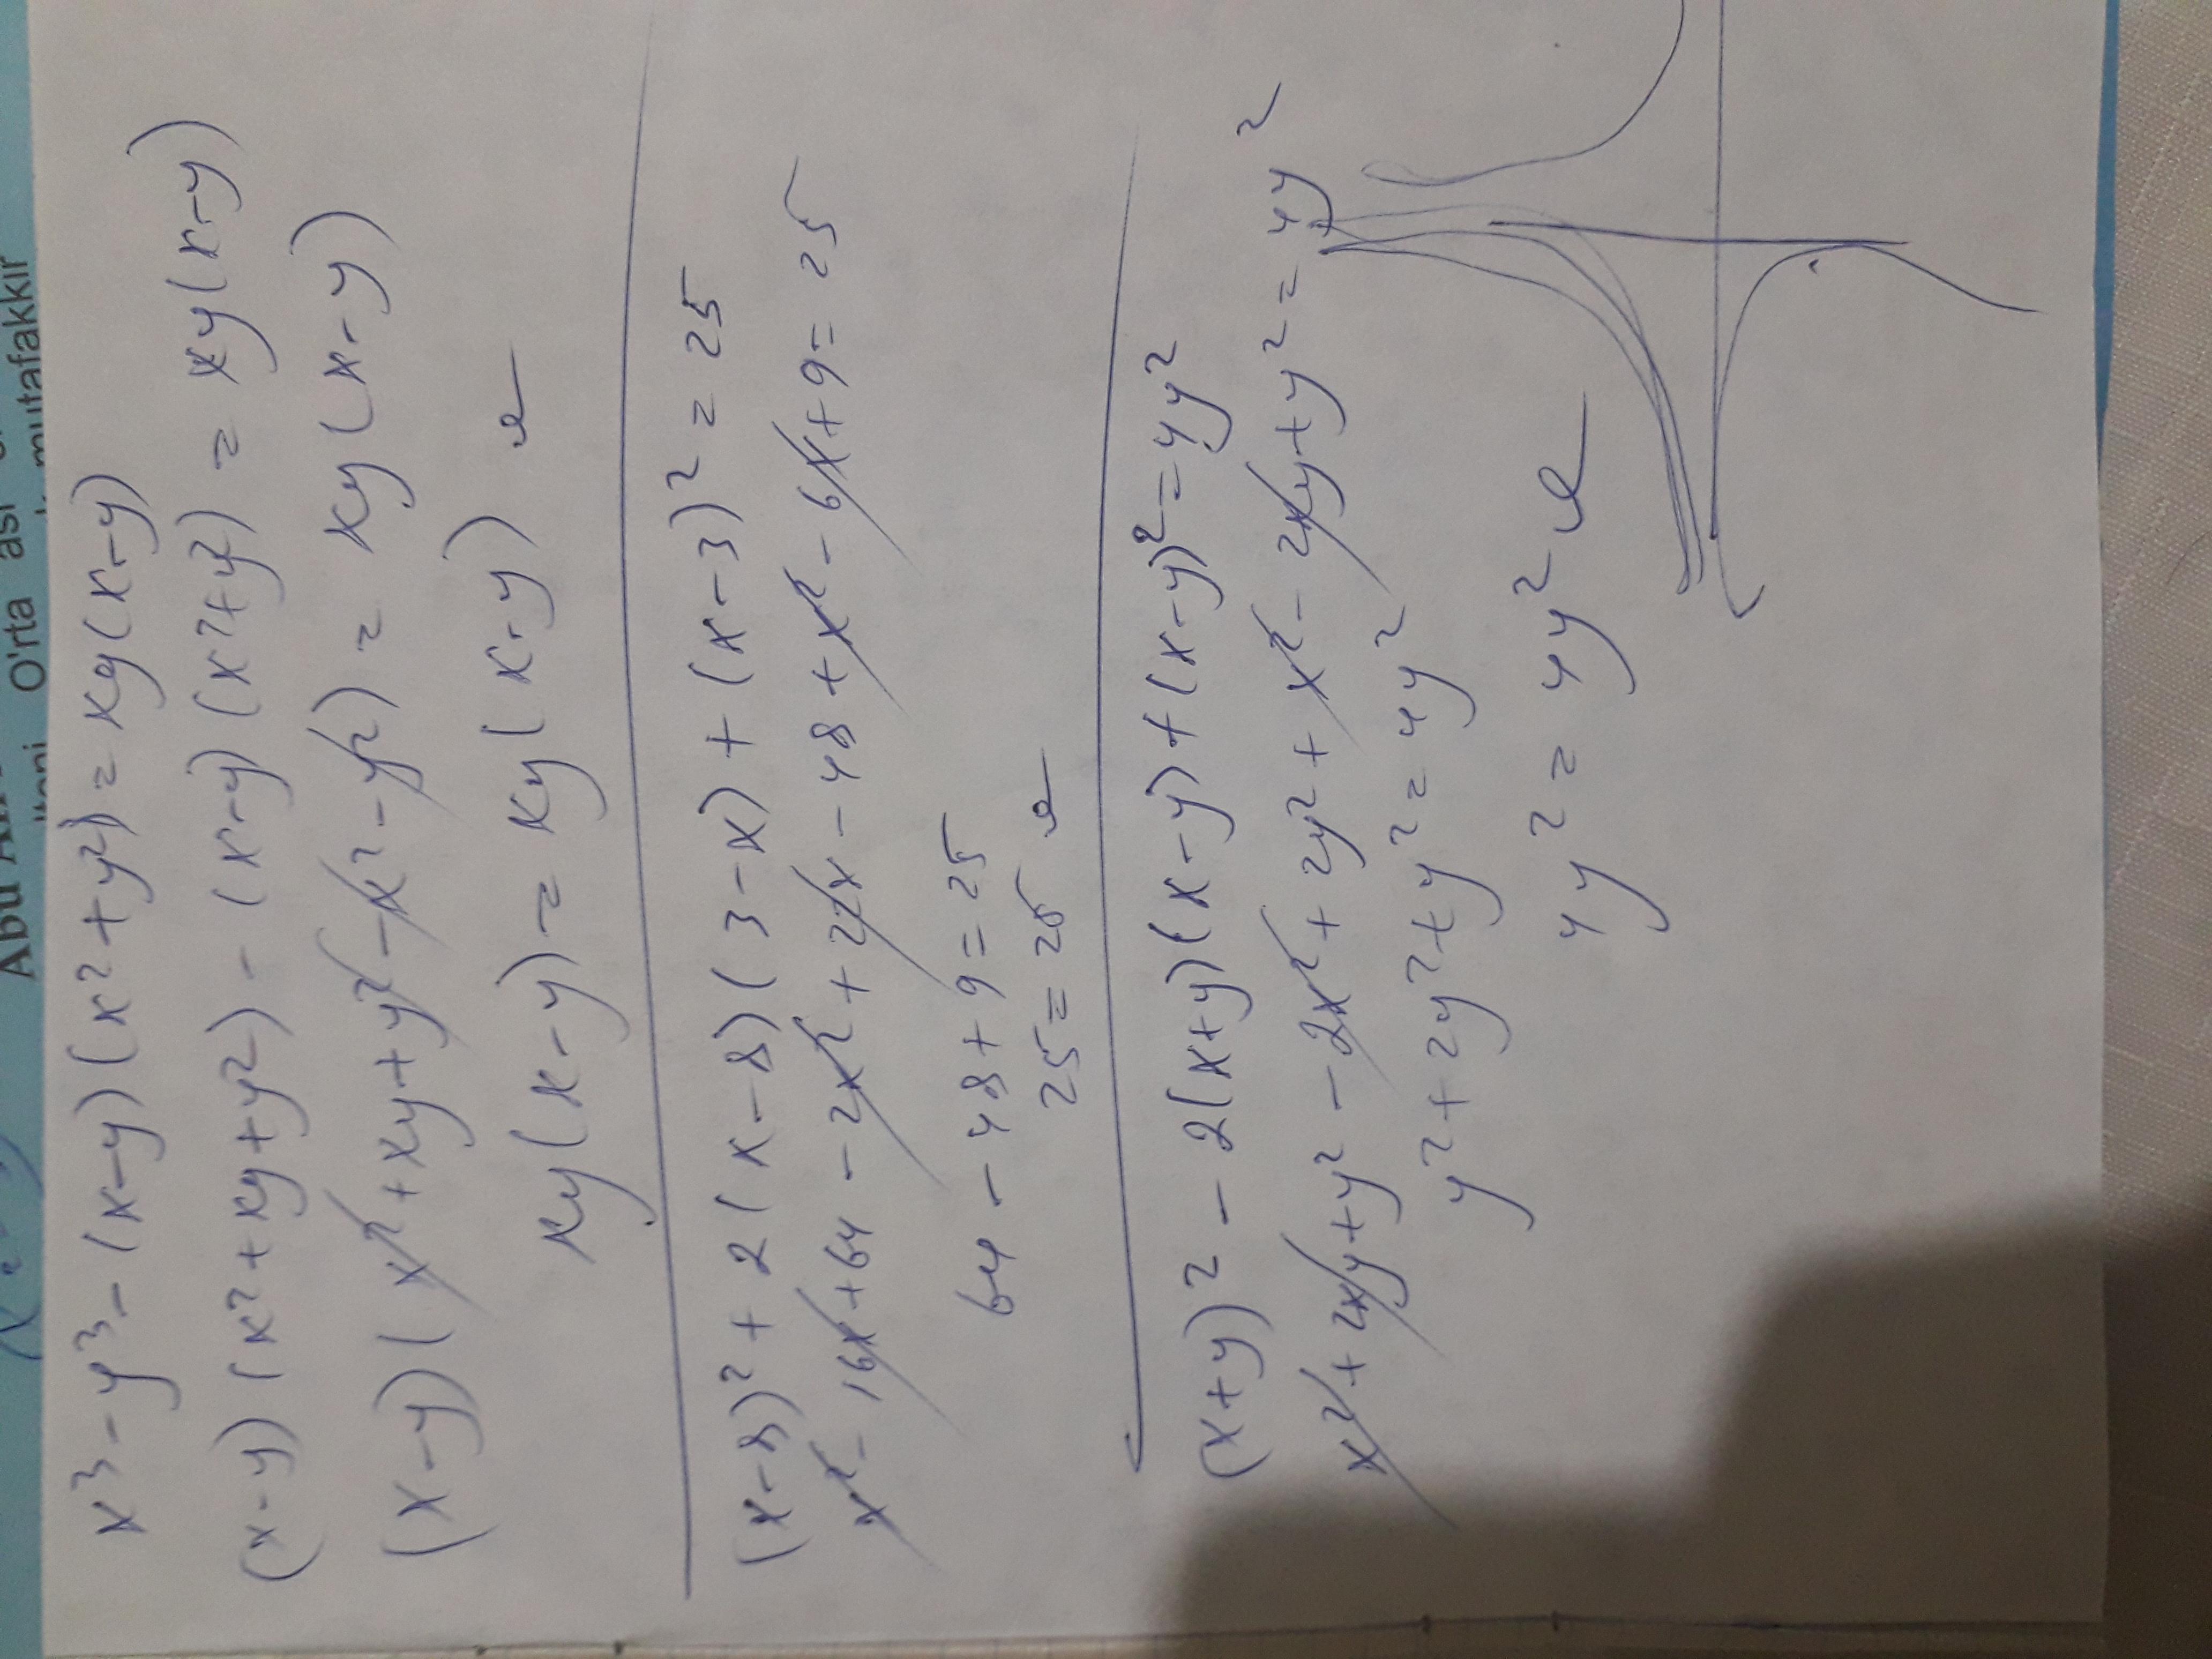 Abu
O'rta asr
mutafakkir
x³-y³-(x-y)(x²+y²)=xy(x-y)
(x-y)(x²+xy+y²)-(x-y)(x²+y²)=xy(x-y)
(x-y)(x²+xy+y²-x²-y²)=xy(x-y)
xy(x-y)=xy(x-y)
(x-8)²+2(x-8)(3-x)+(x-3)²=25
x²-16x+64-2x²+22x-48+x²-6x+9=25
64-48+9=25
25=25
(x+y)²-2(x+y)(x-y)+(x-y)²=4y²
x²+2xy+y²-2x²+2y²+x²-2xy+y²=4y²
y²+2y²+y²=4y²
4y²=4y²